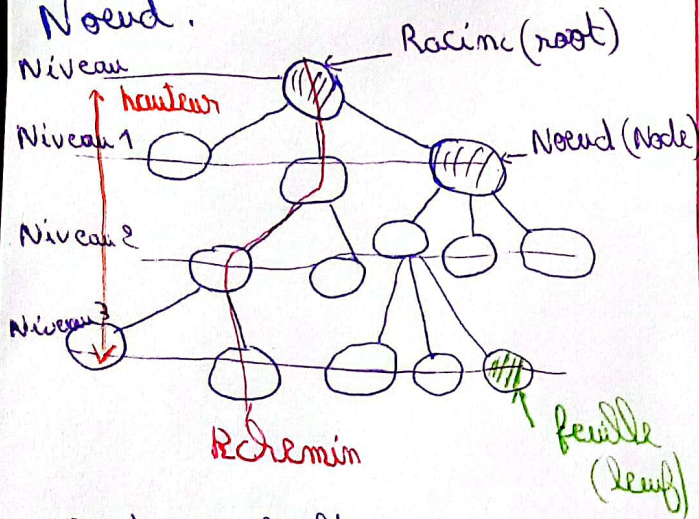 Noeud.
Racine (root)
Niveau
hauteur
Niveau 1
Noeud (Node)
Niveau 2
Niveau 3
chemin
feuille
(leaf)